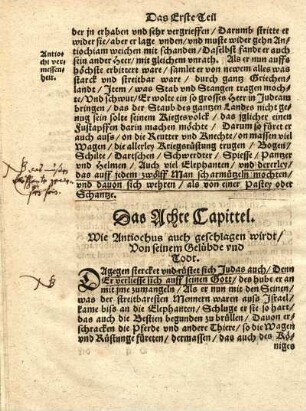 Das Erste Teil
der jn erhaben vnd sehr vergrieffen / Darumb stritte er
wider sie / aber er lage vnden / vnd muste wider gehn An-
tiochiam weichen mit schanden / Daselbst fande er auch
sein ander Herr / mit gleichem vnrath. Als er nun auffs
höchste erbittert ware / samlet er von newem alles was
starck vnd streitbar ware / durch gantz Griechen-
landt / Item / was Stab vnd Stangen tragen moch-
te / Vnd schwur / Er wolte ein so grossen Herr in Judeam
bringen / das der Staub des gantzen Landes nicht ge-
nug sein solte seinem Kriegesvolck / das jglicher einen
Fustapffen darin machen möchte / Darum so füret er
auch aus / on die Reutter vnd Knechte / on massen viel
Wagen / die allerley Kriegsrüstung trugen / Bogen /
Schilte / Dartschen / Schwerdter / Spiesse / Pantzer
vnd Helmen / Auch viel Elephanten / vnd dererley /
das auff jedem zwölff Man scharmützeln mochten /
vnd dauon sich wehren / als von einer Pastey oder
Schantze.
Antio-
chi ver-
messen-
heit.
Das Achte Capittel.
Wie Antiochus auch geschlagen wirdt /
Von seinem Gelübde vnd
Todt.
DAgegen stercket vnd rüstet sich Judas auch / Denn
Er verliesse sich auff seinen Gott / des hube er an
mit jme zumangeln / Als er nun mit den Seinen /
was der streitbarsten Mennern waren ausz Jsrael /
kame biss an die Elephanten / Schluge er sie so hart /
das auch die Bestien begunden zu brüllen / Dauon er-
schracken die Pferde vnd andere Thiere / so die Wagen
vnd Rüstunge füreten / dermassen / das auch des Kö-
niges